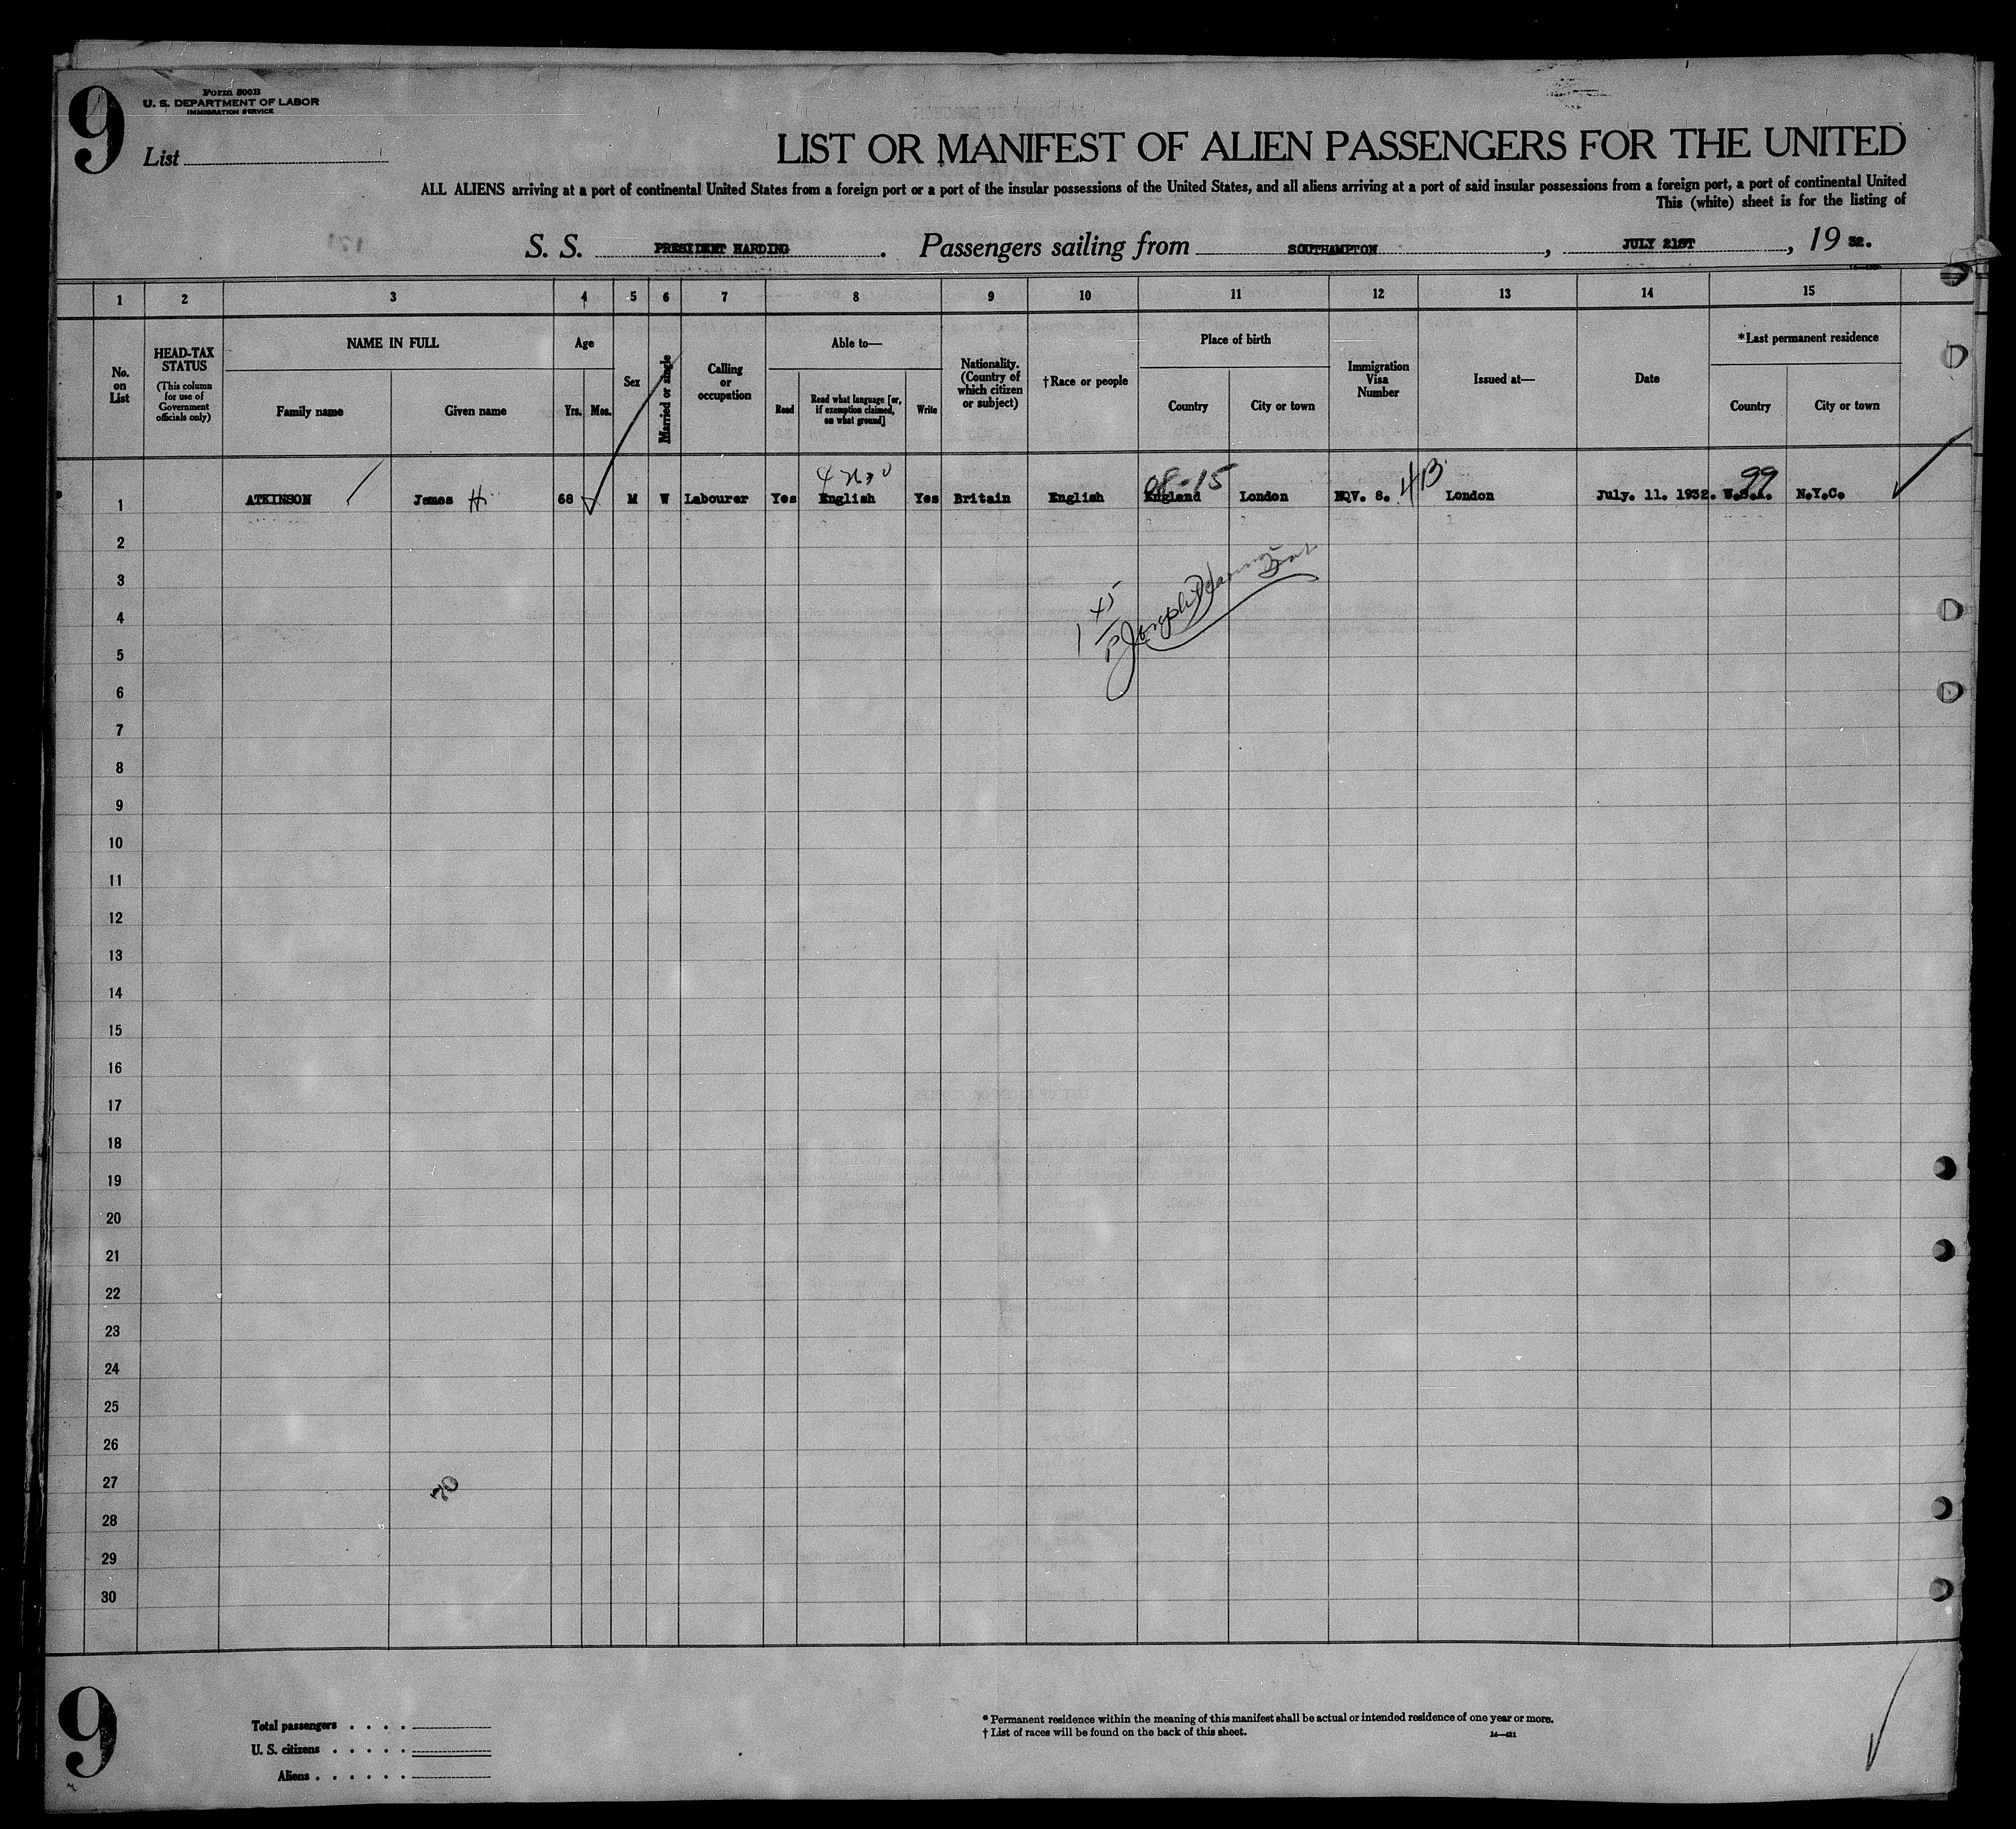 9
Form 500B
U. S. DEPARTMENT OF LABOR
IMMIGRATION SERVICE
List
LIST OR MANIFEST OF ALIEN PASSENGERS FOR THE UNITED
ALL ALIENS arriving at a port of continental United States from a foreign port or a port of the insular possessions of the United States, and all aliens arriving at a port of said insular possessions from a foreign port, a port of continental United
This (white) sheet is for the listing of
S. S. PRESIDENT HARDING. Passengers sailing from SOUTHAMPTON, JULY 21ST, 19 32.
1 2 3 4 5 6 7 8 9 10 11 12 13 14 15
No. on List
HEAD-TAX STATUS
(This column for use of Government officials only)
NAME IN FULL
Family name Given name
Age
Yrs. Mos.
Sex
Married or single
Calling or occupation
Able to—
Read
Read what language [or, if exemption claimed, on what ground]
Write
Nationality. (Country of which citizen or subject)
†Race or people
Place of birth
Country City or town
Immigration Visa Number
Issued at—
Date
*Last permanent residence
Country City or town
08-15 4B 99
1 ATKINSON James H. 68 M W Labourer Yes English Yes Britain English England London NQV. 8. London July. 11. 1932. U.S.A. N.Y.C.
2
3
4
5
6
7
8
9
10
11
12
13
14
15
16
17
18
19
20
21
22
23
24
25
26
27
28
29
30
9
Total passengers
U. S. citizens
Aliens
* Permanent residence within the meaning of this manifest shall be actual or intended residence of one year or more.
† List of races will be found on the back of this sheet.